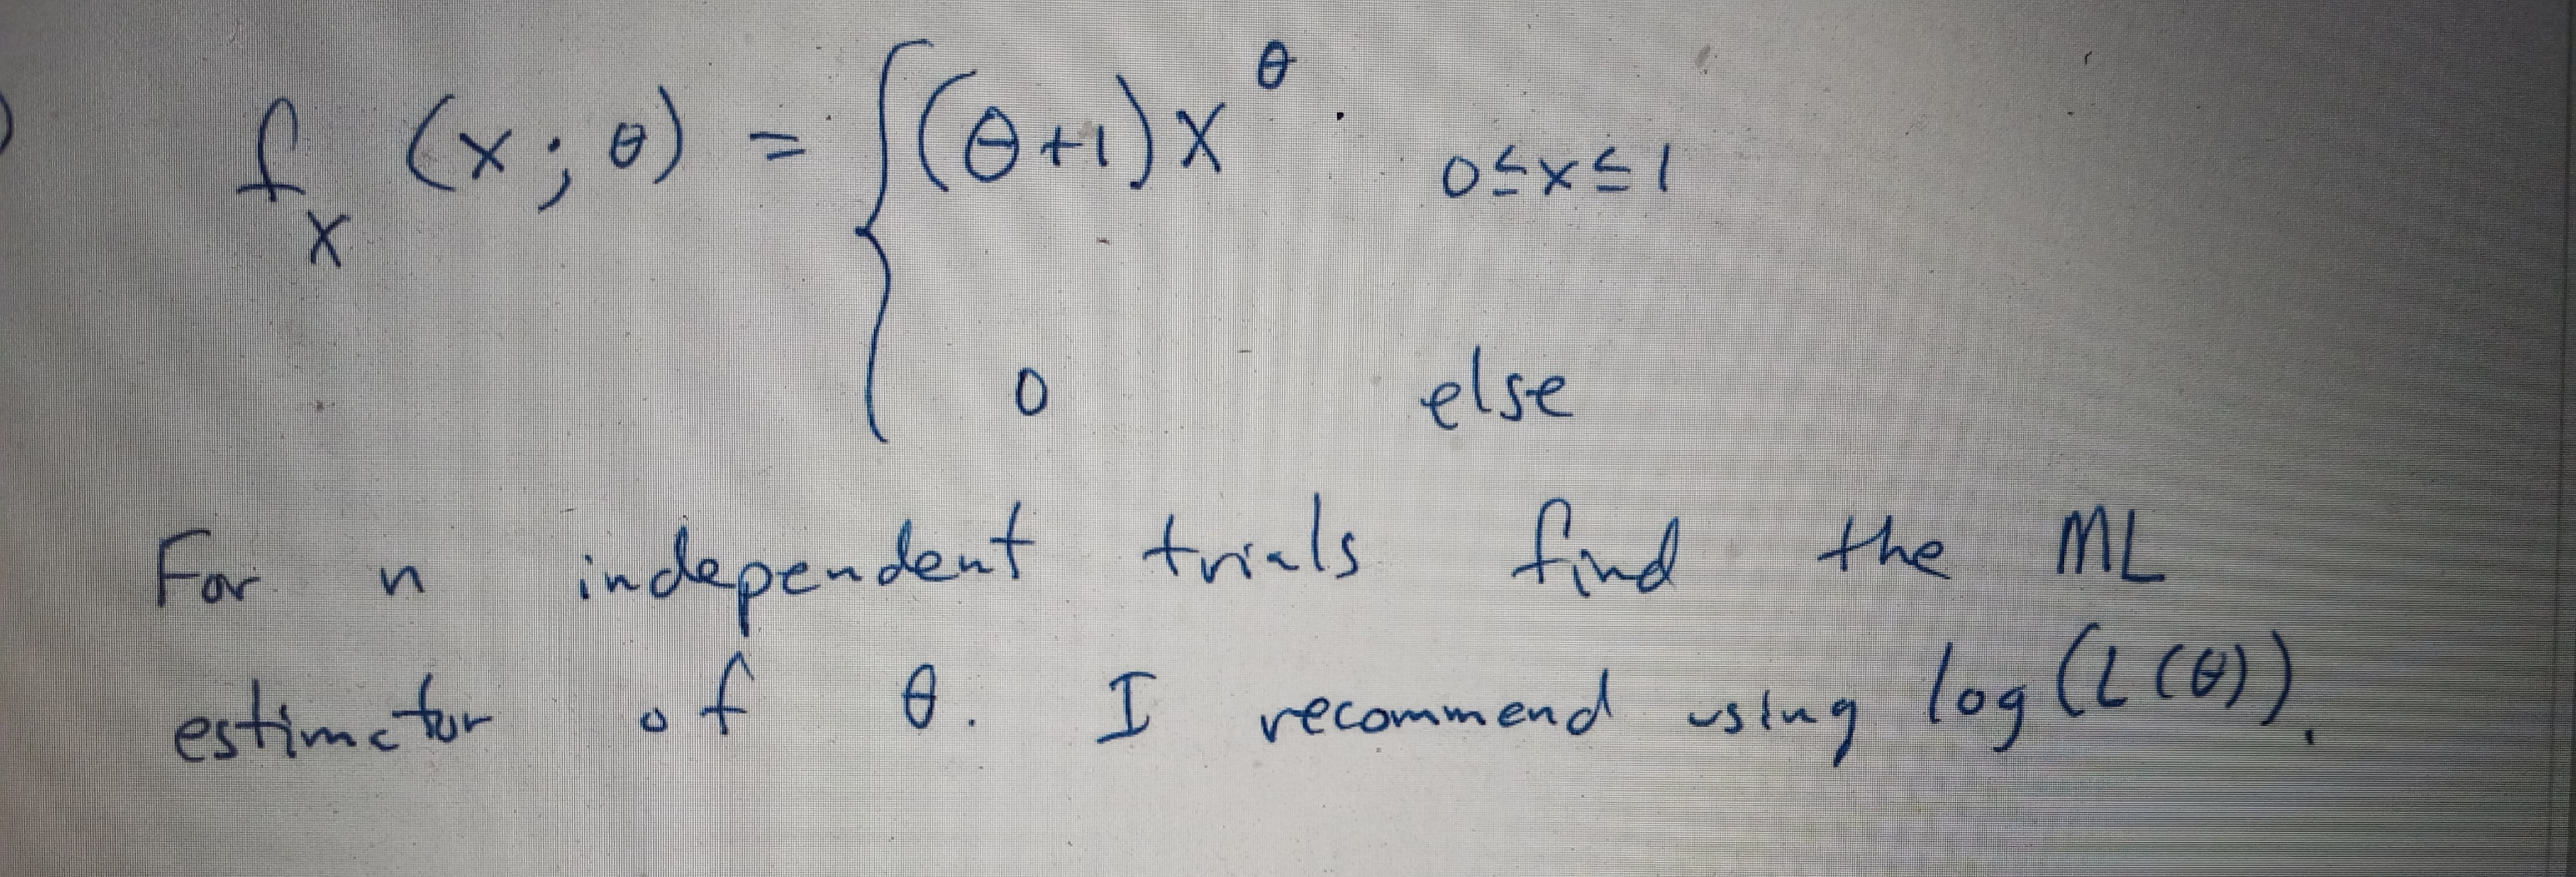 ) f_X (x; θ) = { (θ+1) x^θ . 0≤x≤1
0 else
For n independent trials find the ML
estimator of θ. I recommend using log(L(θ)).